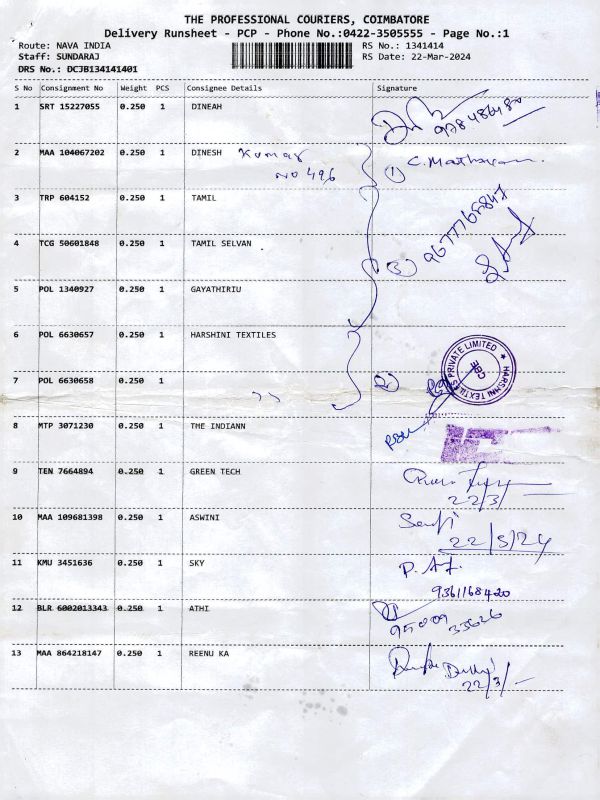 THE PROFESSIONAL COURIERS, COIMBATORE
Delivery Runsheet - PCP - Phone No.:0422-3505555 - Page No.:1
Route: NAVA INDIA RS No.: 1341414
Staff: SUNDARAJ RS Date: 22-Mar-2024
DRS No.: DCJB134141401
S No Consignment No Weight PCS Consignee Details Signature
1 SRT 15227055 0.250 1 DINEAH
2 MAA 104067202 0.250 1 DINESH Kumar 1 C. Mathavan.
NO 496
3 TRP 604152 0.250 1 TAMIL
4 TCG 50601848 0.250 1 TAMIL SELVAN 3
5 POL 1340927 0.250 1 GAYATHIRIU
6 POL 6630657 0.250 1 HARSHINI TEXTILES
HARSHNI TEXTILES PRIVATE LIMITED ★ CBE
7 POL 6630658 0.250 1 " 2
8 MTP 3071230 0.250 1 THE INDIANN
9 TEN 7664894 0.250 1 GREEN TECH
22/3/
10 MAA 109681398 0.250 1 ASWINI
22/3/24
11 KMU 3451636 0.250 1 SKY
9361168420
12 BLR 6002013343 0.250 1 ATHI
95009 33626
13 MAA 864218147 0.250 1 REENU KA
22/3/